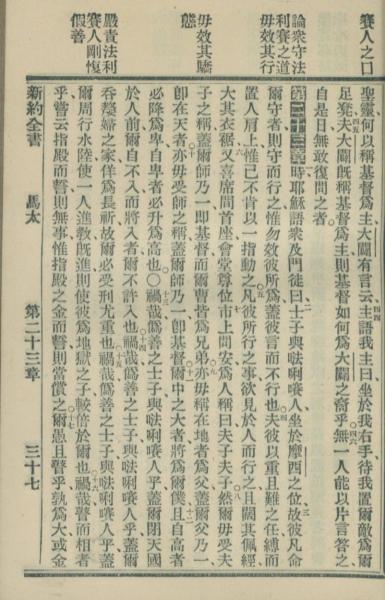 賽人之口
論衆守法
利賽之道
毋效其行
毋效其驕
態
嚴責法利
賽人剛愎
假善
聖靈何以稱基督爲主大闢有言云主語我主曰坐於我右手待我置爾敵爲爾
足凳夫大闢旣稱基督爲主則基督如何爲大闢之裔乎無一人能以片言答之
自是日無敢復問之者
第二十三章時耶穌語衆及門徒曰士子與㕸唎㘔人坐於摩西之位故彼凡命
爾守者則守而行之惟勿效彼所爲蓋彼言而不行也夫彼以重且難之任縛而
置人肩上惟已不肯以一指動之凡彼所行之事欲見於人而行之且闊其佩經
大其衣裾又喜席間首座會堂尊位市上問安爲人稱曰夫子夫子然爾毋受夫
子之稱蓋爾師乃一卽基督而爾曹皆爲兄弟亦毋稱在地者爲父蓋爾父乃一
卽在天者亦毋受師之稱蓋爾師乃一卽基督爾中之大者將爲爾僕且自高者
必降爲卑自卑者必升爲高也○禍哉僞善之士子與㕸唎㘔人乎蓋爾閉天國
於人前爾自不入而將入者爾不許入也禍哉僞善之士子與㕸唎㘔人乎蓋爾
吞嫠婦之家佯爲長祈故爾必受刑尤重也禍哉僞善之士子與㕸唎㘔人乎蓋
爾周行水陸使一人進敎旣進則使彼爲地獄之子較倍於爾也禍哉瞽而相者
乎嘗云指殿而誓則無事惟指殿之金而誓則當償之爾愚且瞽乎孰爲大或金
新約全書 馬太 第二十三章 三十七